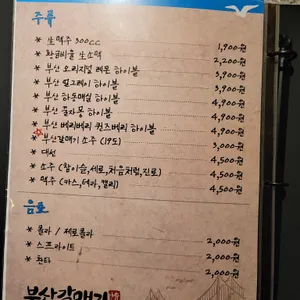 주류
* 生맥주 300cc 1,900원
* 황금비율 生소맥 2,200원
* 부산 오리지널 레몬 하이볼 3,900원
* 부산 얼그레이 하이볼 4,900원
* 부산 하동매실 하이볼 4,900원
* 부산 꿀자몽 하이볼 4,900원
* 부산 베리베리 퀸즈베리 하이볼 4,900원
부산갈매기 소주 (19도) 3,000원
* 대선 4,500원
* 소주 (참이슬, 새로, 처음처럼, 진로) 4,500원
* 맥주 (카스, 테라, 켈리) 4,500원
음료
* 콜라 / 제로콜라 2,000원
* 스프라이트 2,000원
* 환타 2,000원
부산갈매기